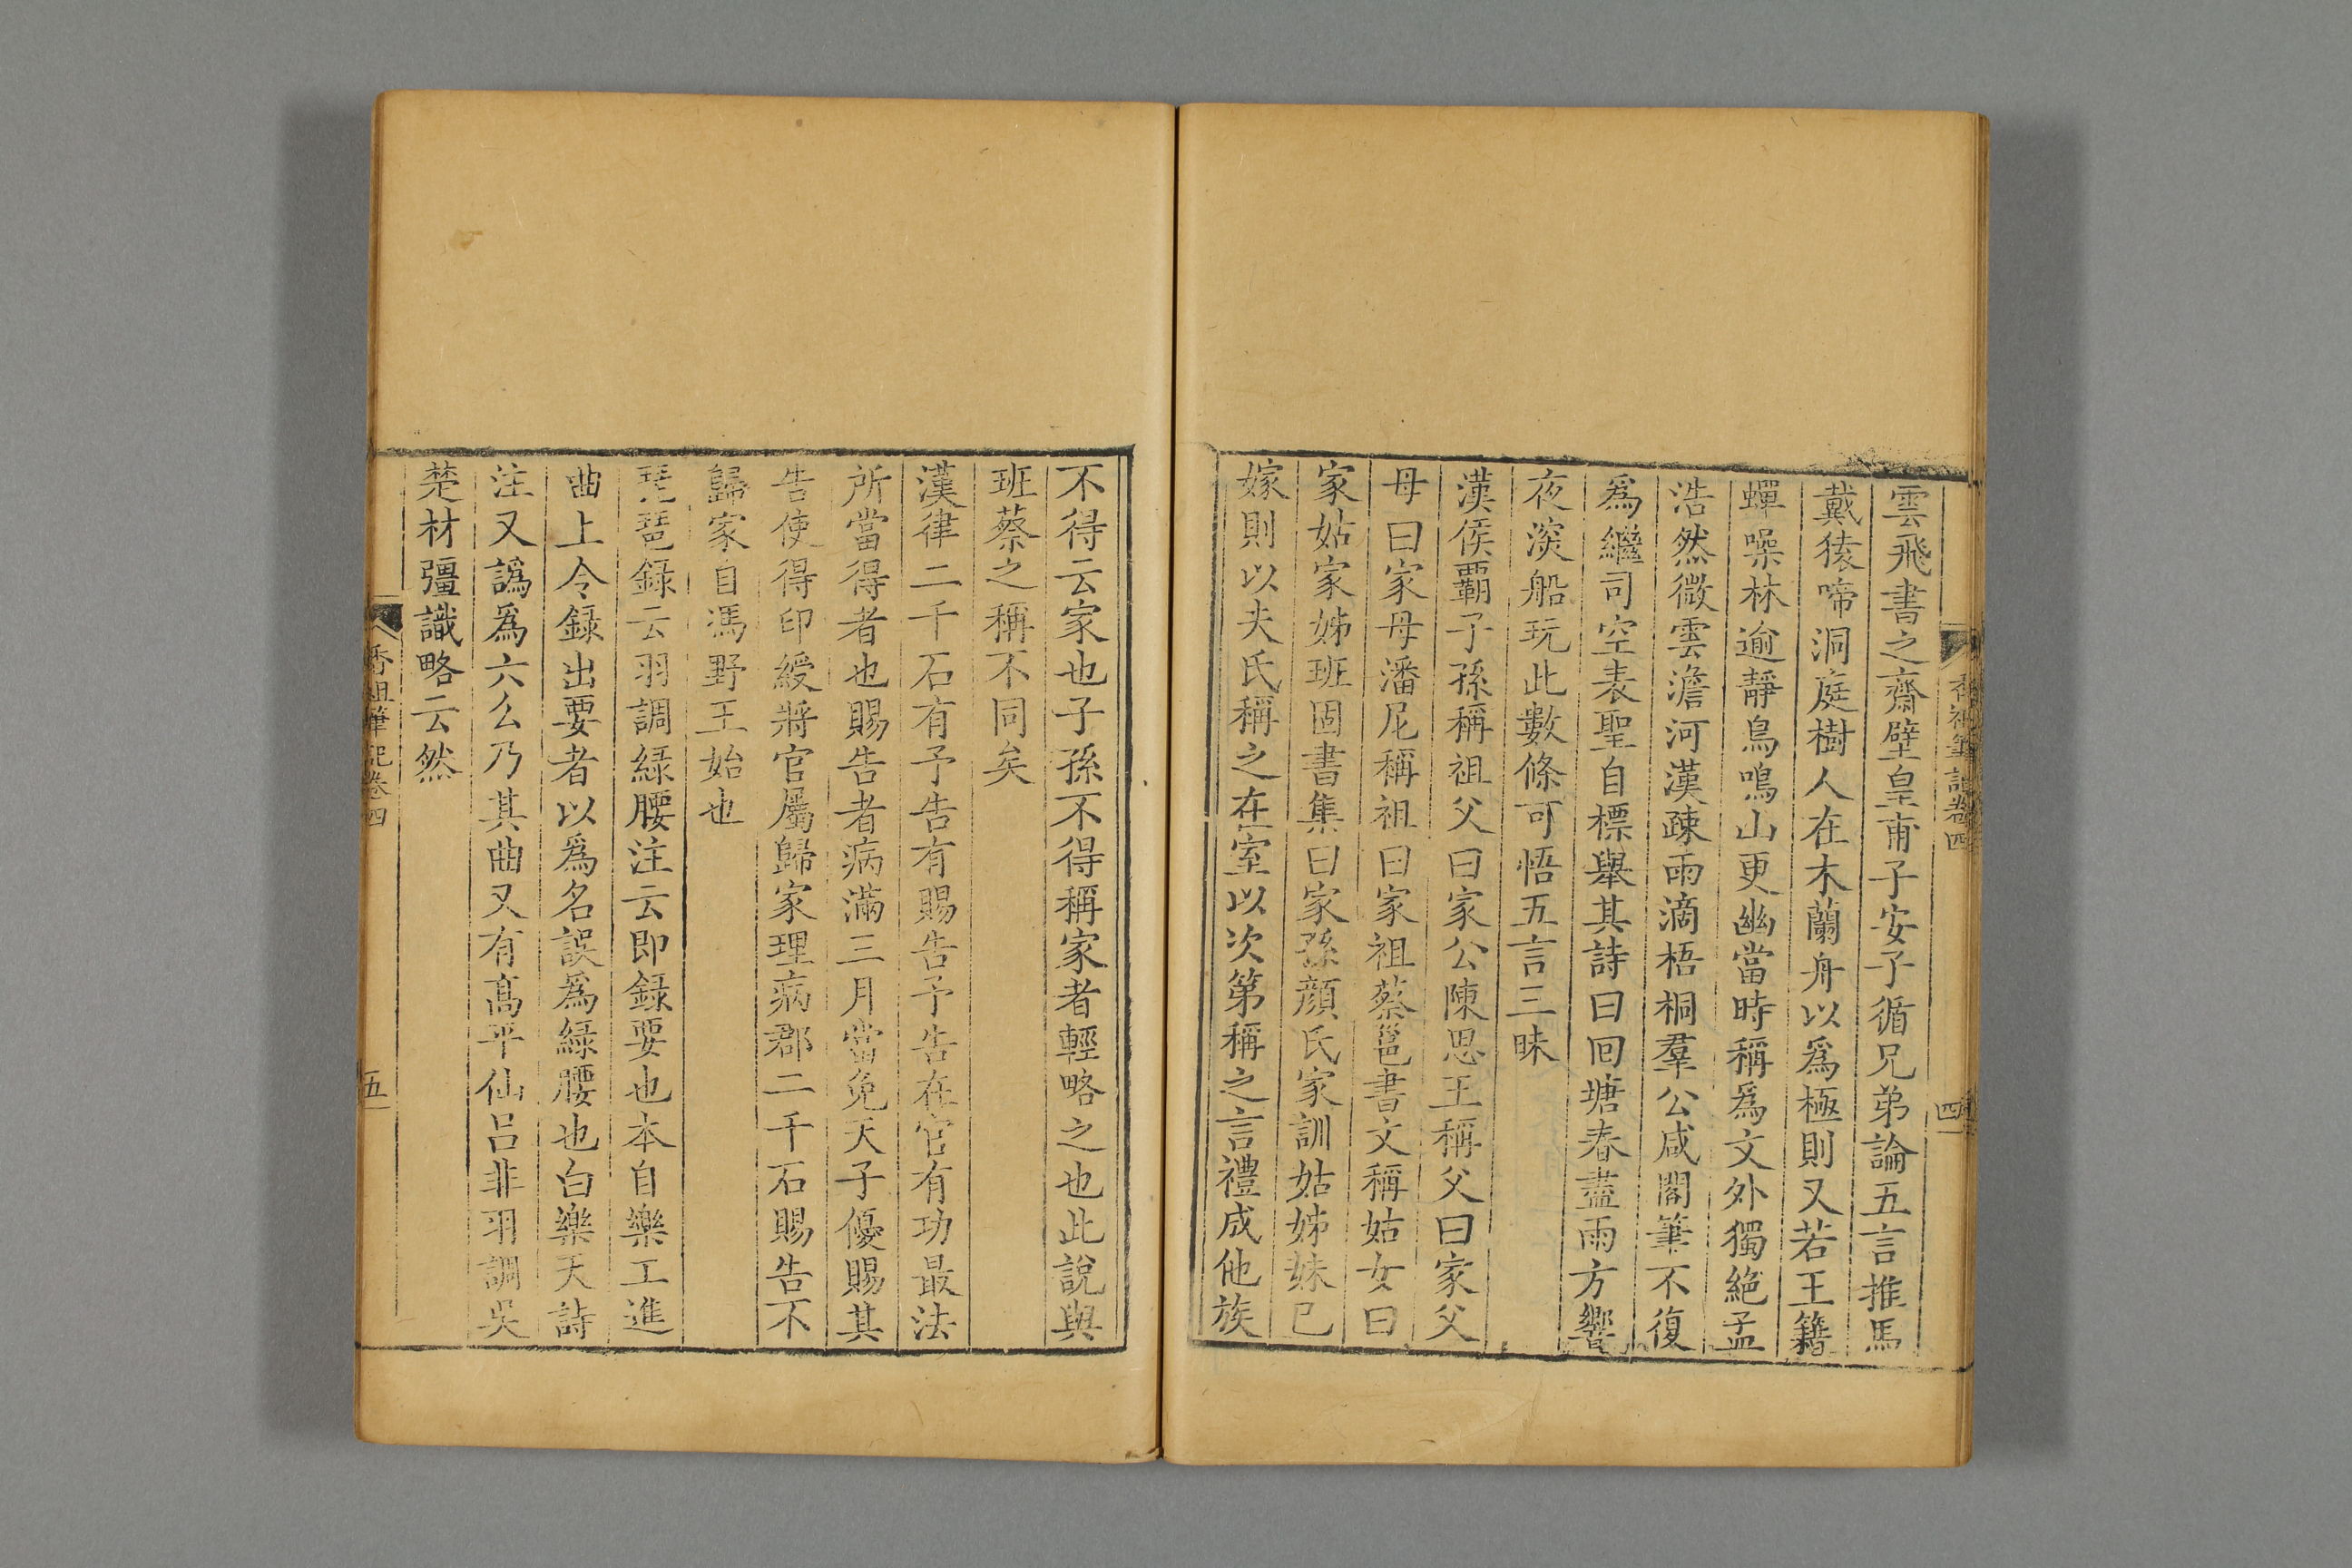 香祖筆記卷四
四
雲飛書之齋壁皇甫子安子循兄弟論五言推馬
戴猿啼洞庭樹人在木蘭舟以爲極則又若王籍
蟬噪林逾靜鳥鳴山更幽當時稱爲文外獨絶孟
浩然微雲澹河漢疎雨滴梧桐羣公咸閣筆不復
爲繼司空表聖自標舉其詩曰回塘春盡雨方響
夜深船玩此數條可悟五言三昧
漢侯覇子孫稱祖父曰家公陳思王稱父曰家父
母曰家母潘尼稱祖曰家祖蔡邕書文稱姑女曰
家姑家姊班固書集曰家孫顔氏家訓姑姊妹已
嫁則以夫氏稱之在室以次第稱之言禮成他族
不得云家也子孫不得稱家者輕略之也此說與
班蔡之稱不同矣
漢律二千石有予告有賜告予告在官有功最法
所當得者也賜告者病滿三月當免天子優賜其
告使得印綬將官屬歸家理病郡二千石賜告不
歸家自馮野王始也
琵琶録云羽調緑腰注云即録要也本自樂工進
曲上令録出要者以爲名誤爲緑腰也白樂天詩
注又譌爲六么乃其曲又有高平仙呂非羽調吳
楚材彊識略云然
香祖筆記卷四
五